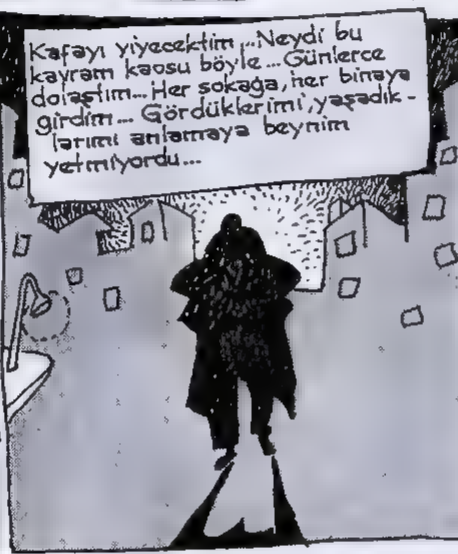 Kafayı yiyecektim... Neydi bu
kavram kaosu böyle... Günlerce
dolaştım... Her sokağa, her binaya
girdim... Gördüklerimi, yaşadık-
larımı anlamaya beynim
yetmiyordu...